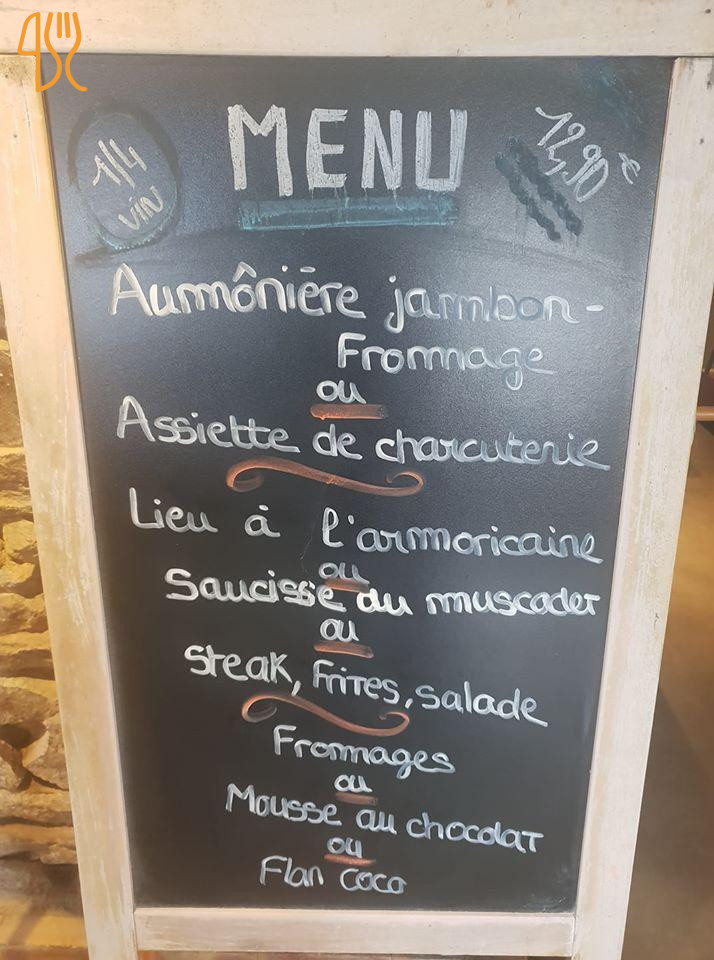 1/4
VIN
MENU
12,90€
Aumônière jambon-
Frommage
ou
Assiette de charcuterie
Lieu à l'armoricaine
ou
Saucisse au muscadet
ou
Steak, Frites, salade
Frommages
ou
Mousse au chocolat
ou
Flan coco